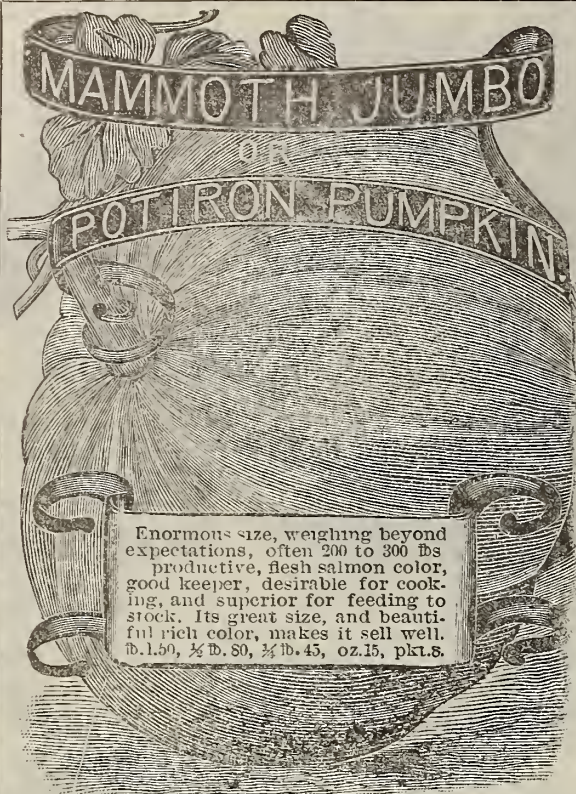 MAMMOTH JUMBO
OR
POTIRON PUMPKIN.
Enormous size, weighing beyond
expectations, often 200 to 300 lbs
productive, flesh salmon color,
good keeper, desirable for cook-
ing, and superior for feeding to
stock. Its great size, and beauti-
ful rich color, makes it sell well.
lb. 1.50, ½ lb. 80, ¼ lb. 45, oz. 15, pkt. 8.